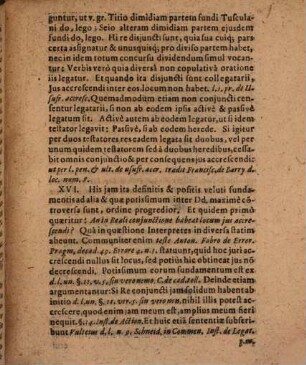 guntur, ut v. gr. Titio dimidiam partem fundi Tuscula-
ni do, lego; Seio alteram dimidiam partem ejusdem
fundi do, lego. Hi re disjuncti sunt, quia sua cuiq; pars
certa assignatur & unusquisq; pro diviso partem habet,
nec in idem totum concursu dividendum simul vocan-
tur: Verbis verò quia diversâ non copulativâ oratione
iis legatur. Et quando ita disjuncti sunt collegatarii,
Jus accrescendi inter eos locum non habet. l. 1. pr. de Usufr. accresc.
Quemadmodum etiam non conjuncti cen-
sentur legatarii, si non ab eodem ipsis activè & passivè
legatum sit. Activè autem ab eodem legatur, ut si idem
testator legavit: Passivè, si ab eodem herede. Si igitur
per duos testatores res eadem legata sit duobus, vel per
unum quidem testatorem sed à duobus heredibus, cessa-
bit omnis conjunctio & per consequens jus accrescendi:
ut per l. pen. & ult. de usufr. accr. tradit Francisc. de Barry d.
loc. num. 8.
XVI. His jam ita definitis & positis veluti funda-
mentis ad alia & quæ potissimum inter Dd. maximè cō-
troversa sunt, ordine progredior. Et quidem primò
quæritur: An in Reali conjunctione habeat locum jus accre-
scendi? Quâ in quæstione Interpretes in diversa statim
abeunt. Communiter enim teste Anton. Fabro de Error.
Pragm. decad. 43. Errore 4. n. 1. statuunt, quid hoc juris ac-
crescendi nullus sit locus, sed potiùs hîc obtineat jus nō
decrescendi. Potissimum eorum fundamentum est ex
d. l. un. §. 11. vers. sin verò non ow. C. de cad. toll. Deinde etiam
argumentantur: Si Re conjuncti jam solidum habent ab
initio d. l. un. §. 11. ver. 5. sin verò non, nihil illis potest ac-
crescere, quod enim jam meum est, ampliùs meum fieri
nequit. §. 14. inst. de Action. Et huic etiā sententiæ subscri-
bunt Vulteius d. l. n. 9. Schneid. in Commen. Inst. de Legat.